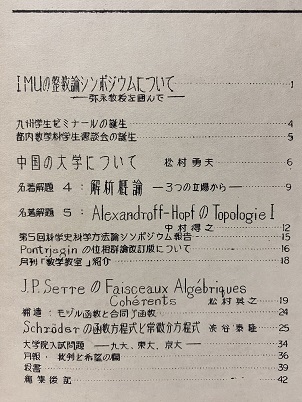 IMUの整数論シンポジウムについて 1
—弥永教授を囲んで—
九州学生ゼミナールの誕生 4
都内数学科学生懇談会の誕生 5
中国の大学について 松村勇夫 6
名著解題 4：解析概論 —3つの立場から— 9
名著解題 5：Alexandroff-HopfのTopologie I
中村得之 12
第5回科学史科学方法論シンポジウム報告 15
Pontrjaginの位相群論改訂版について 16
月刊「数学教室」紹介 18
J.P.SerreのFaisceaux Algébriques
Cohérents 松村英之 19
構造：モヅル函数と合同ζ函数 24
Schröderの函数方程式と常微分方程式 渋谷泰隆 25
大学院入試問題 —九大、東大、京大— 34
月報・批判と希望の欄 36
叙書 39
編集後記 42